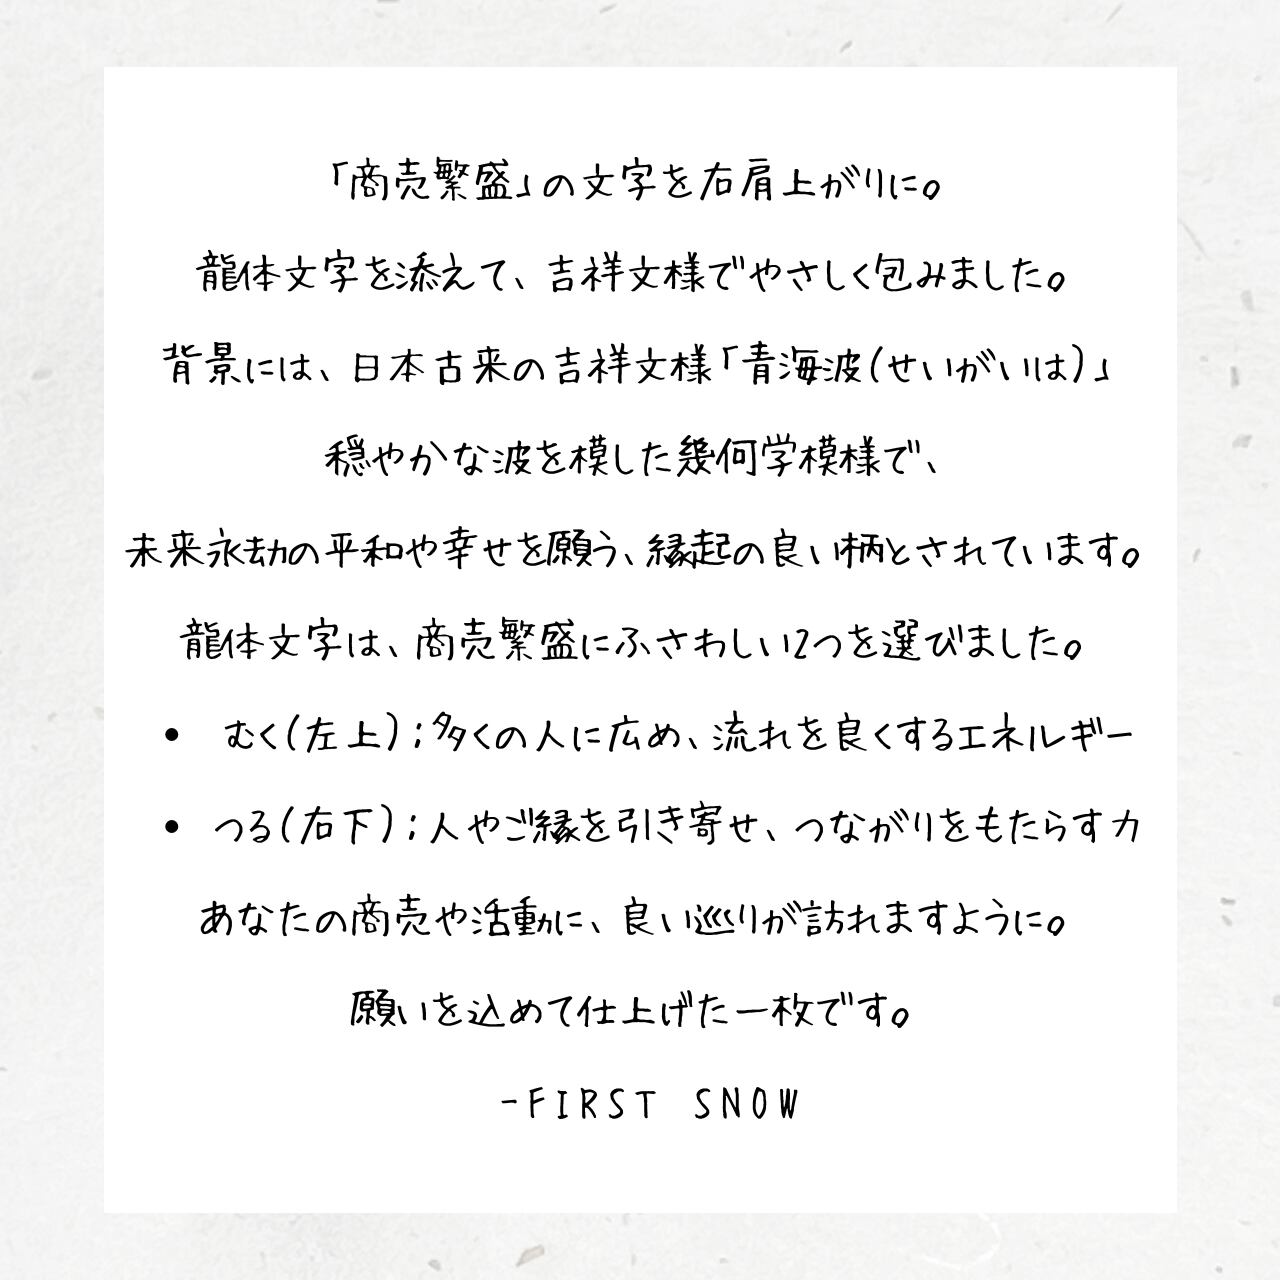 「商売繁盛」の文字を右肩上がりに。
龍体文字を添えて、吉祥文様でやさしく包みました。
背景には、日本古来の吉祥文様「青海波(せいがいは)」
穏やかな波を模した幾何学模様で、
未来永劫の平和や幸せを願う、縁起の良い柄とされています。
龍体文字は、商売繁盛にふさわしい2つを選びました。
• むく(左上);多くの人に広め、流れを良くするエネルギー
• つる(右下);人やご縁を引き寄せ、つながりをもたらす力
あなたの商売や活動に、良い巡りが訪れますように。
願いを込めて仕上げた一枚です。
-FIRST SNOW